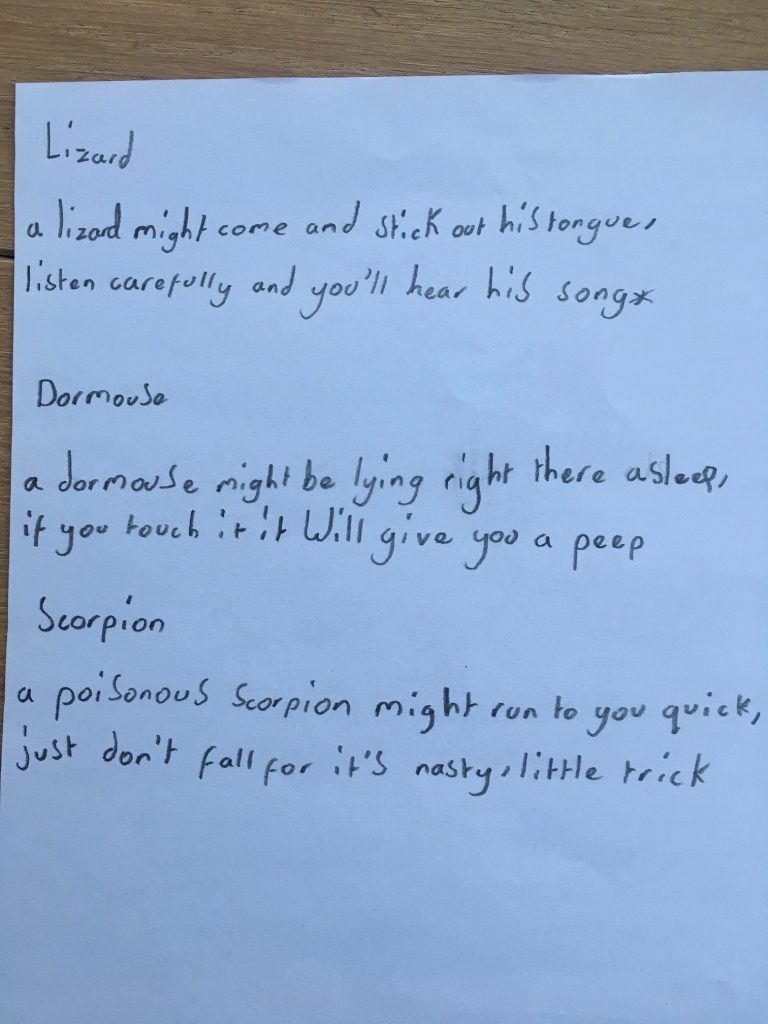 Lizard
a lizard might come and stick out his tongue,
listen carefully and you'll hear his song*
Dormouse
a dormouse might be lying right there asleep,
if you touch it it Will give you a peep
Scorpion
a poisonous scorpion might run to you quick,
just don't fall for it's nasty, little trick